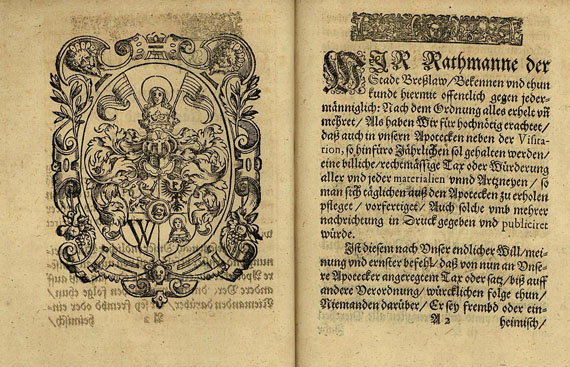 W
WJR Rathmanne der
Stadt Breßlaw/Bekennen vnd thun
kunde hiermit offentlich gegen jeder-
männiglich: Nach dem Ordnung alles erhelt vñ
mehret/ Als haben Wir für hochnötig erachtet/
daß auch in vnsern Apotecken neben der Visita-
tion, so hinfüro Jährlichen sol gehalten werden/
eine billiche/rechtmässige Tax oder Würderung
aller vnd jeder materialien vnnd Artzneyen/ so
man sich täglichen auß den Apotecken zu erholen
pfleget/ vorfertiget/ Auch solche vmb mehrer
nachrichtung in Druck gegeben vnd publiciret
würde.
Ist diesem nach Vnser endlicher Will/mei-
nung vnd ernster befehl/ daß von nun an Vnse-
re Apotecker angeregtem Tax oder satz/ biß auff
andere Verordnung/ würcklichen folge thun/
Niemanden darüber/ Er sey frembd oder ein-
A 2 heimisch/